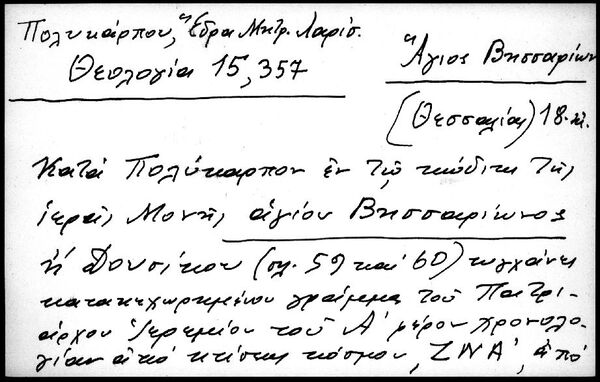 Πολυκάρπου, Ἕδρα Μητρ. Λαρίσ.
Θεολογία 15, 357
Ἅγιος Βησσαρίων
(Θεσσαλίας) 18. κ.
Κατὰ Πολύκαρπον ἐν τῷ κώδικι τῆς
ἱερᾶς Μονῆς ἁγίου Βησσαρίωνος
ἢ Δουσίκου (σελ. 59 καὶ 60) τυγχάνει
κατακεχωρημένον γράμμα τοῦ Πατρι-
άρχου Ἱερεμίου τοῦ Α' φέρον χρονολο-
γίαν ἀπὸ κτίσεως κόσμου, ΖΝΑ', ἀπὸ